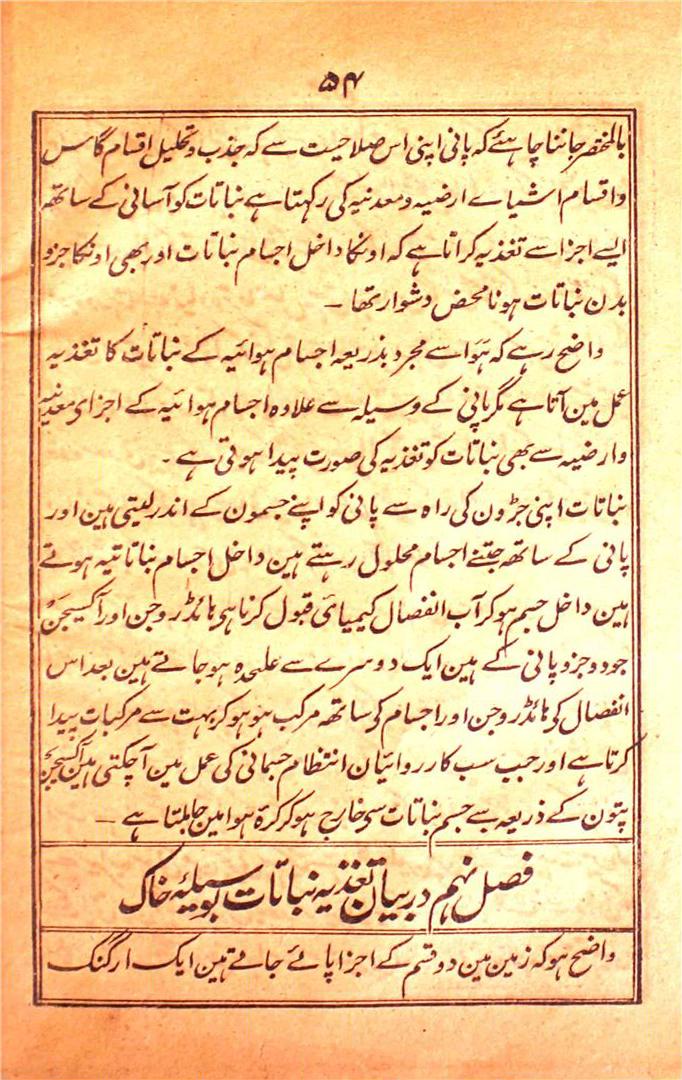 ۵۴
بالمختصر جاننا چاہئے کہ پانی اپنی اس صلاحیت سے کہ جذب و تحلیل اقسام گاس
و اقسام اشیاے ارضیہ و معدنیہ کی رکہتا ہے نباتات کو آسانی کے ساتھ
ایسے اجزا سے تغذیہ کراتا ہے کہ اونکا داخل اجسام نباتات اور بھی اونکا جزو
بدن نباتات ہونا محض دشوار تھا ۔
واضح رہے کہ ہَوا سے مجرد بذریعہ اجسام ہوائیہ کے نباتات کا تغذیہ
عمل مین آتا ہے مگر پانی کے وسیلہ سے علاوہ اجسام ہوائیہ کے اجزای معدنیہ
و ارضیہ سے بھی نباتات کو تغذیہ کی صورت پیدا ہوتی ہے ۔
نباتات اپنی جڑون کی راہ سے پانی کو اپنے جسمون کے اندر لیتی ہین اور
پانی کے ساتھ جتنے اجسام محلول رہتے ہین داخل اجسام نباتاتیہ ہوتے
ہین داخل جسم ہو کر آب انفصال کیمیائی قبول کرتا ہی ہائڈروجن اور آکسیجن
جو دو جزو پانی کے ہین ایک دوسرے سے علیحدہ ہو جاتے ہین بعد اس
انفصال کی ہائڈروجن اور اجسام کی ساتھ مرکب ہو ہو کر بہت سے مرکبات پیدا
کرتا ہے اور جب سب کارروائیان انتظام جسمانی کی عمل مین آ چکتی ہین آکسیجن
پتون کے ذریعہ سے جسم نباتات سی خارج ہو کر کرۂ ہوا مین جا ملتا ہے ۔
فصل نہم در بیان تغذیہ نباتات بوسیلۂ خاک
واضح ہو کہ زمین مین دو قسم کے اجزا پائے جاتے ہین ایک ارگنک